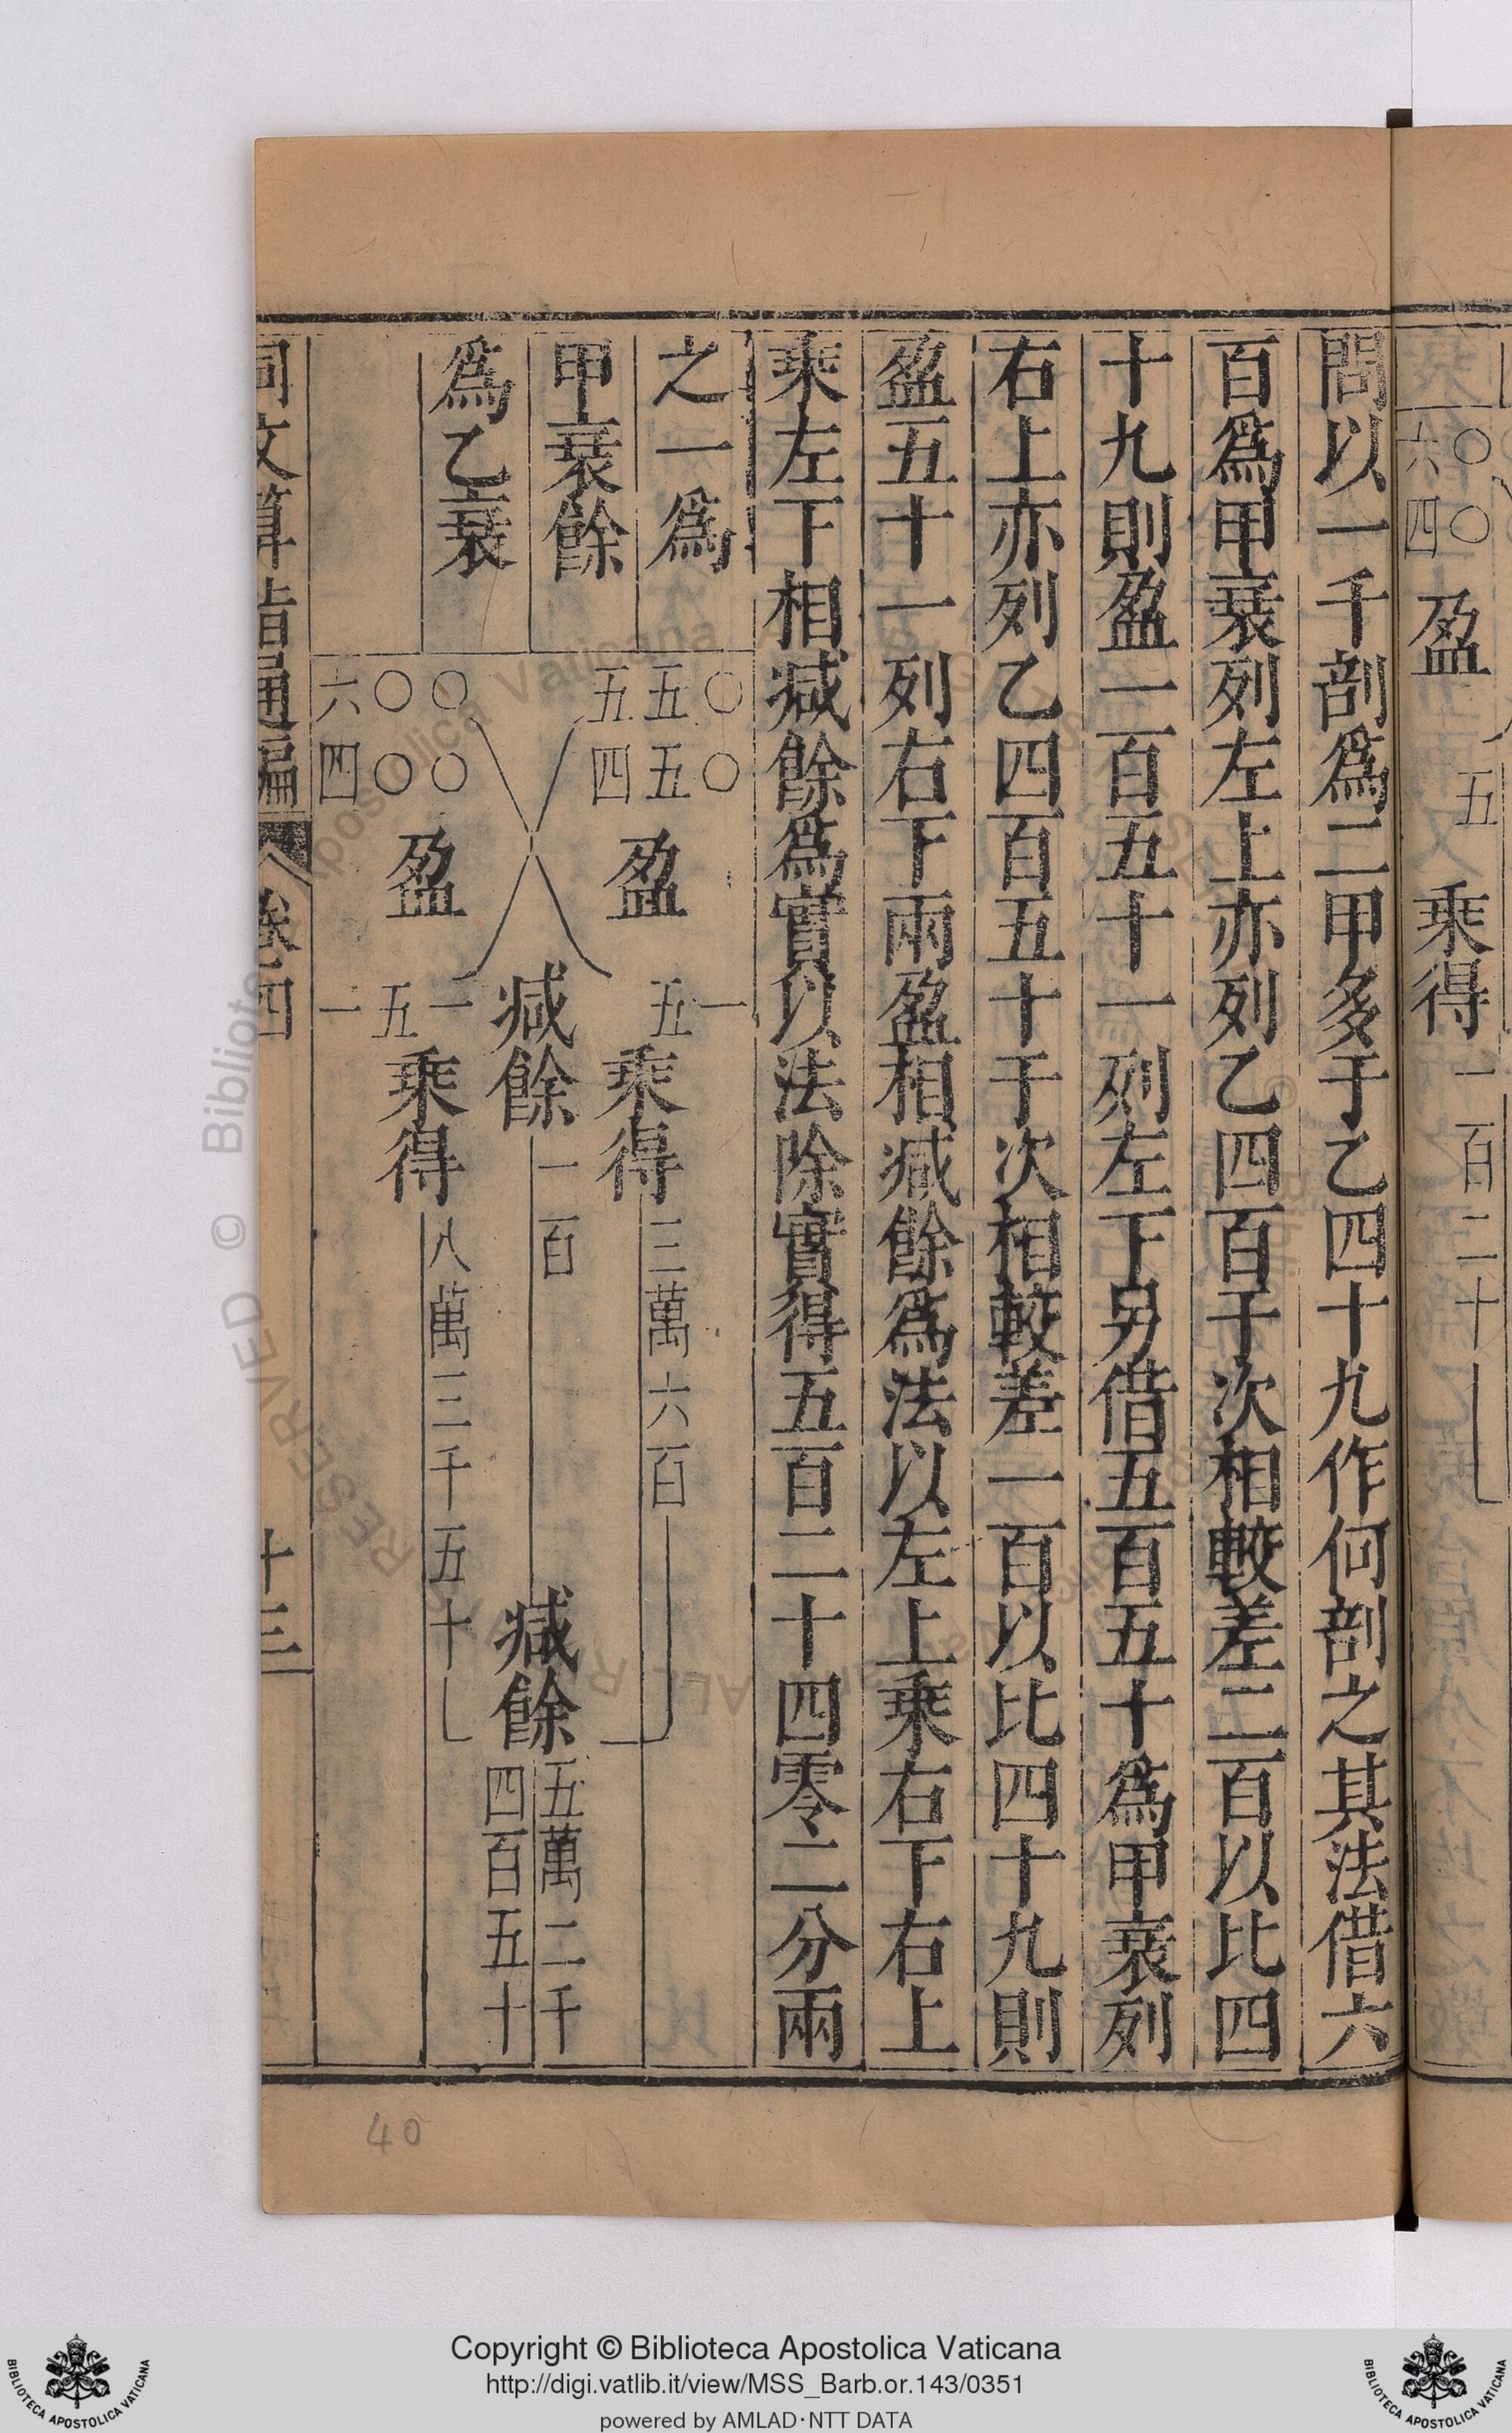 問以一千剖爲二甲多于乙四十九作何剖之其法借六
百爲甲衰列左上亦列乙四百于次相較差二百以比四
十九則盈一百五十一列左下另借五百五十爲甲衰列
右上亦列乙四百五十于次相較差一百以比四十九則
盈五十一列右下兩盈相减餘爲法以左上乘右下右上
乘左下相减餘爲實以法除實得五百二十四零二分兩
之一爲
甲衰餘
爲乙衰
〇〇
五五 盈 五一 乘得 三萬六百
五四
减餘 一百 减餘 五萬二千四百五十
〇〇
〇〇 盈 一五一 乘得 八萬三千五十
六四
同文算指通編 卷四 十三
〇〇
六四 盈 五 乘得 一百二十
40
© Biblioteca Apostolica Vaticana
RESERVED
Copyright © Biblioteca Apostolica Vaticana
http://digi.vatlib.it/view/MSS_Barb.or.143/0351
powered by AMLAD·NTT DATA
BIBLIOTECA APOSTOLICA VATICANA
BIBLIOTECA APOSTOLICA VATICANA